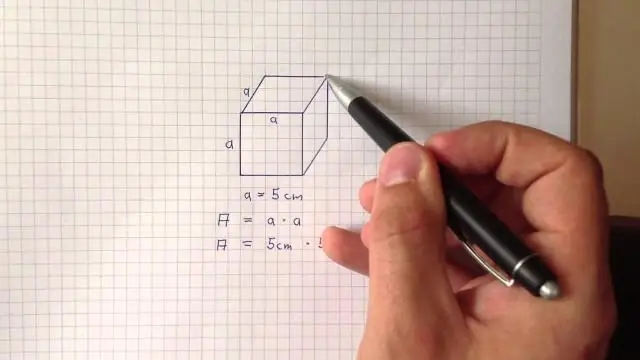 a
a
a
a = 5 cm
A = a · a
A = 5cm · 5